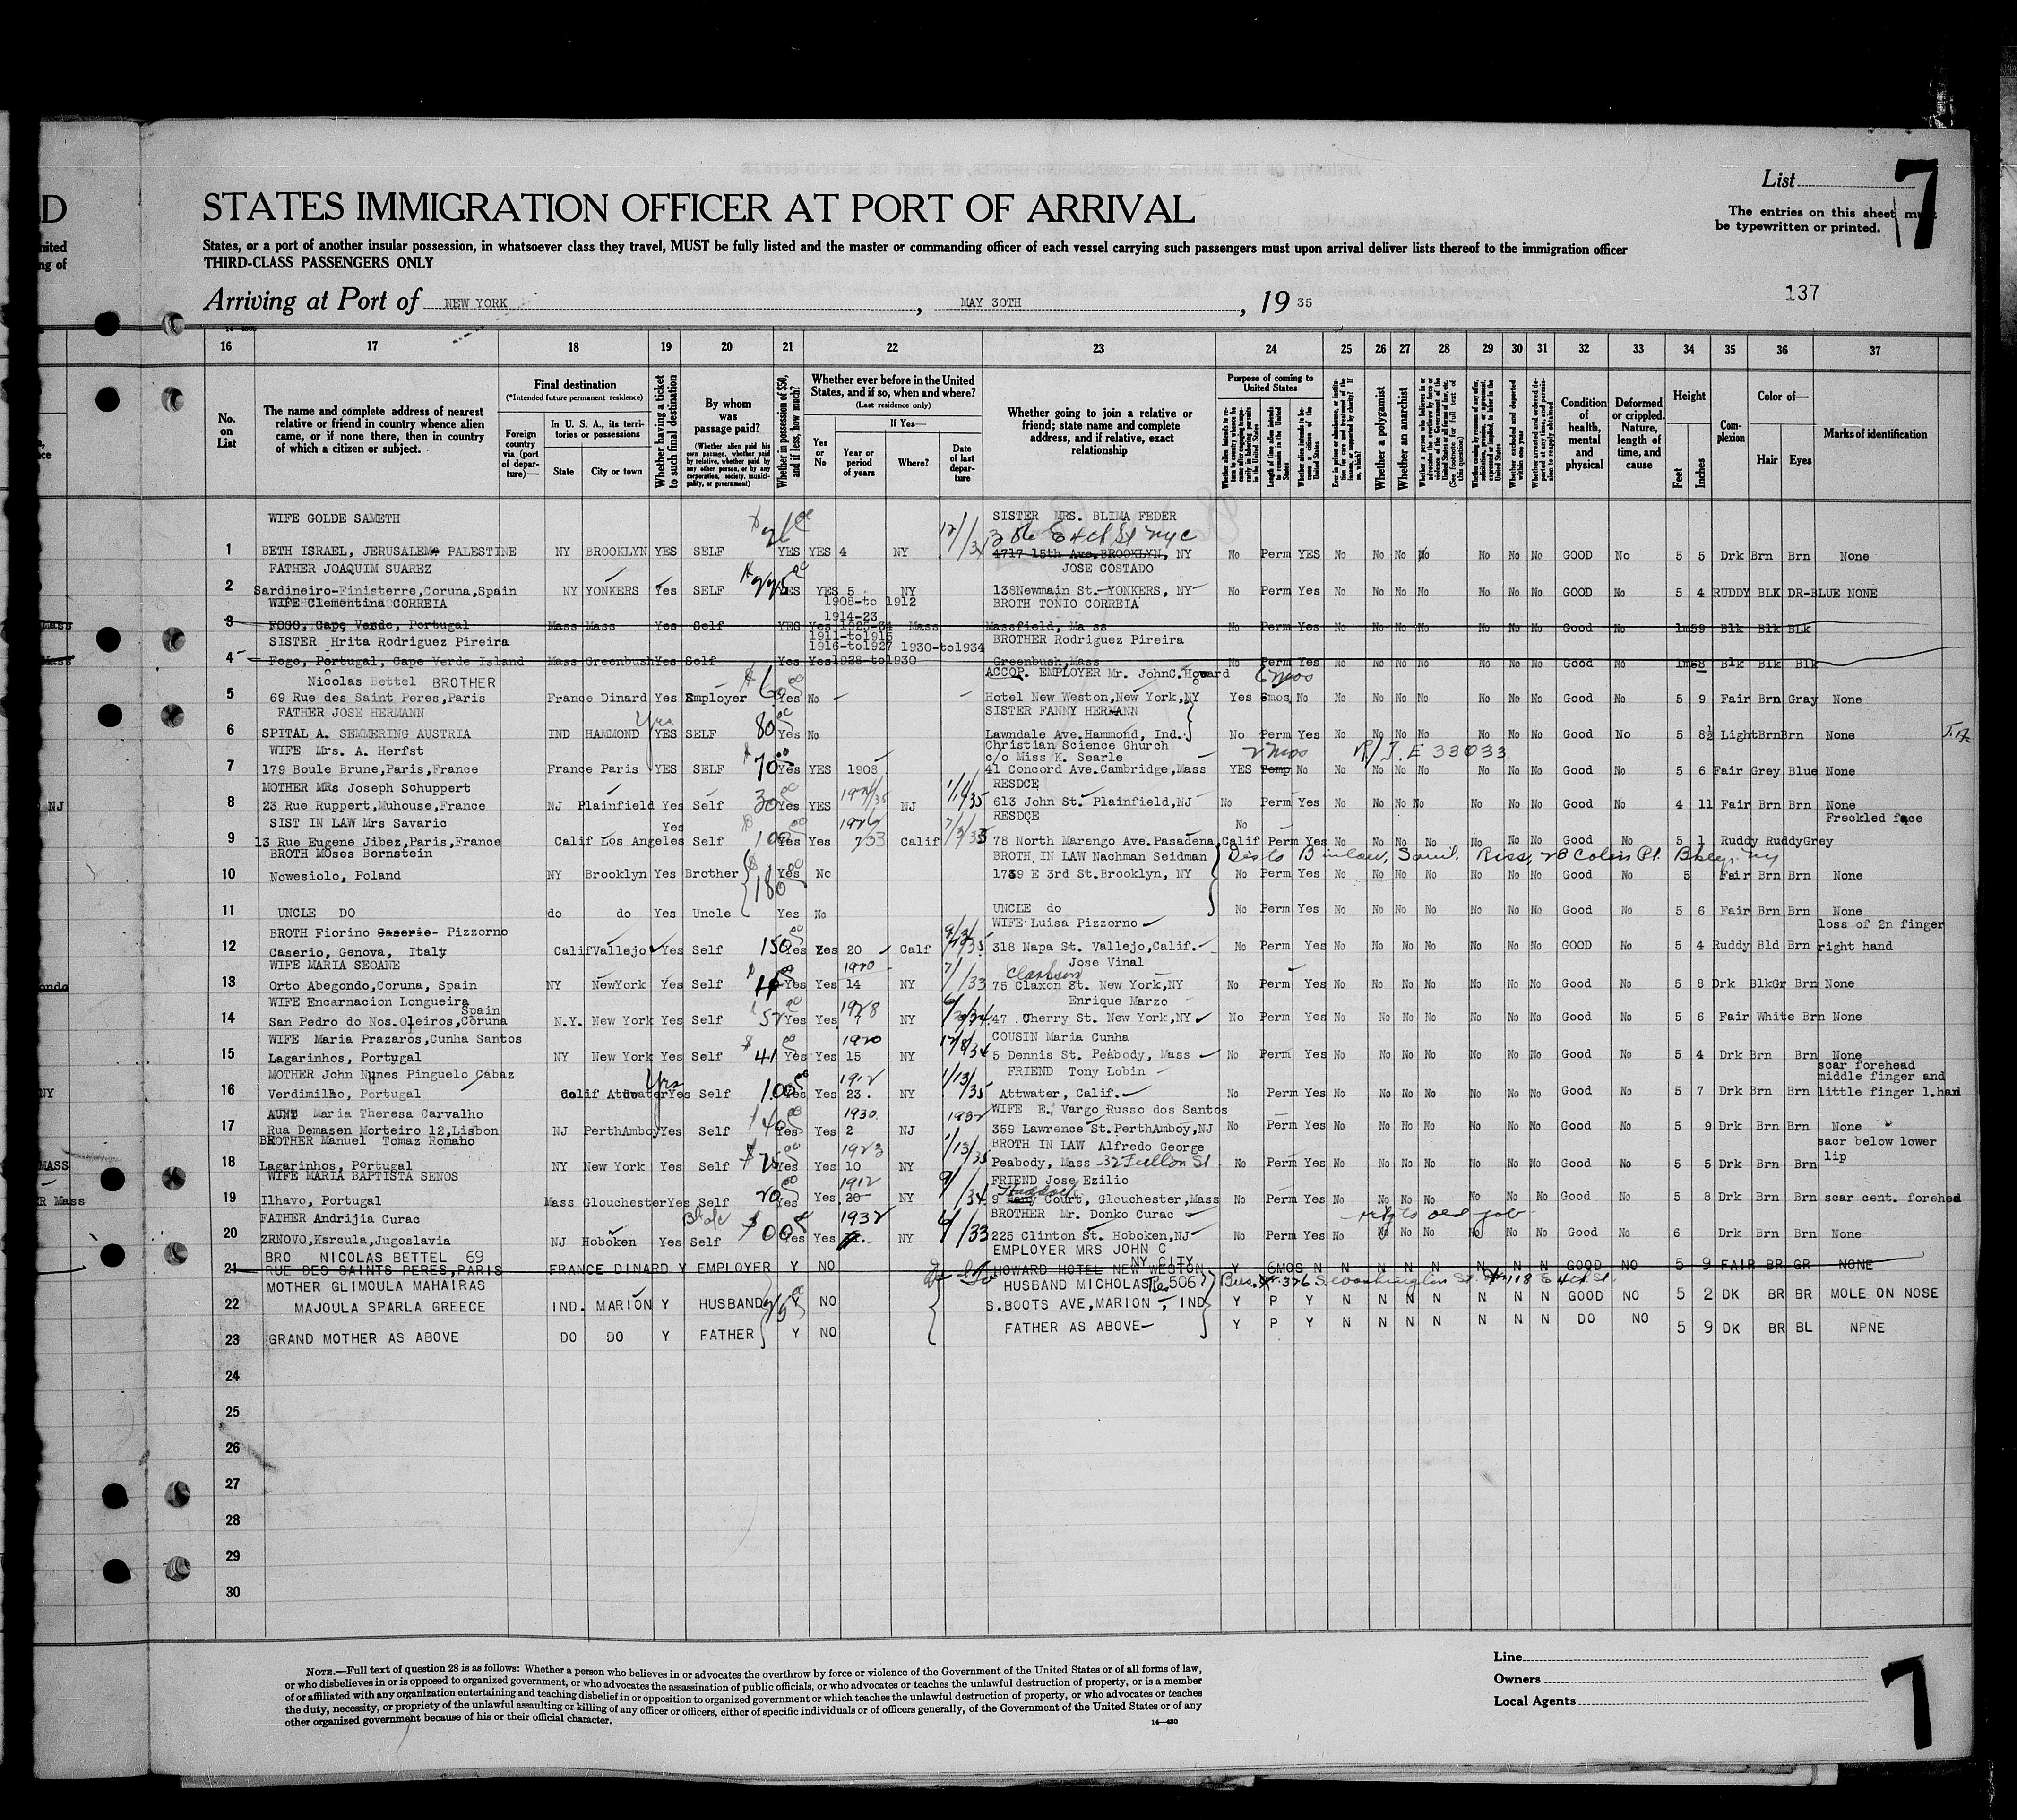 List 7
STATES IMMIGRATION OFFICER AT PORT OF ARRIVAL
The entries on this sheet must
be typewritten or printed.
States, or a port of another insular possession, in whatsoever class they travel, MUST be fully listed and the master or commanding officer of each vessel carrying such passengers must upon arrival deliver lists thereof to the immigration officer
THIRD-CLASS PASSENGERS ONLY
Arriving at Port of NEW YORK, MAY 30TH, 19 35
137
16 17 18 19 20 21 22 23 24 25 26 27 28 29 30 31 32 33 34 35 36 37
No. on List
The name and complete address of nearest relative or friend in country whence alien came, or if none there, then in country of which a citizen or subject.
Final destination
(*Intended future permanent residence)
Foreign country via (port of departure)—
In U. S. A., its territories or possessions
State City or town
Whether having a ticket to such final destination
By whom was passage paid?
(Whether alien paid his own passage, whether paid by relative, whether paid by any other person, or by any corporation, society, municipality, or government)
Whether in possession of $50, and if less, how much?
Whether ever before in the United States, and if so, when and where?
(Last residence only)
Yes or No
If Yes—
Year or period of years Where? Date of last departure
Whether going to join a relative or friend; state name and complete address, and if relative, exact relationship
Purpose of coming to United States
Length of time alien intends to remain in the United States
Whether alien intends to become a citizen of the United States
Whether a polygamist
Whether an anarchist
Condition of health, mental and physical
Deformed or crippled. Nature, length of time, and cause
Height
Feet Inches
Complexion
Color of—
Hair Eyes
Marks of identification
WIFE GOLDE SAMETH SISTER MRS. BLIMA FEDER
1 BETH ISRAEL, JERUSALEM PALESTINE NY BROOKLYN YES SELF YES YES 4 NY 4717 15th Ave. BROOKLYN, NY No Perm YES No No No No No No No GOOD No 5 5 Drk Brn Brn None
FATHER JOAQUIM SUAREZ JOSE COSTADO
2 Sardineiro-Finisterre,Coruna,Spain NY YONKERS Yes SELF YES YES 5 NY 138Newmain St.-YONKERS, NY No Perm Yes No No No No No No No GOOD No 5 4 RUDDY BLK DR-BLUE NONE
WIFE Clementina CORREIA 1908-to 1912 BROTH TONIO CORREIA
1914-23
3 FOGO, Cape Verde, Portugal Mass Mass Yes Self YES Yes 1925-34 Mass Massfield, Ma ss No Perm Yes No No No No No No No Good No 1m59 Blk Blk BLk
SISTER Hrita Rodriguez Pireira 1911-to1915 BROTHER Rodriguez Pireira
1916-to1927 1930-to1934
4 Fogo, Portugal, Cape Verde Island Mass Greenbush Yes Self Yes Yes 1928-to1930 Greenbush,Mass No Perm Yes No No No No No No No Good No 1m68 Blk Blk Blk
Nicolas Bettel BROTHER ACCOP. EMPLOYER Mr. JohnC.Howard 6 mos
5 69 Rue des Saint Peres,Paris France Dinard Yes Employer Yes No Hotel New Weston,New York,NY Yes 6mos No No No No No No No No Good No 5 9 Fair Brn Gray None
FATHER JOSE HERMANN SISTER FANNY HERMANN
6 SPITAL A. SEMMERING AUSTRIA IND HAMMOND YES SELF 80 Yes No Lawndale Ave.Hammond, Ind. No Perm Yes No No No No No No No Good No 5 8½ LightBrnBrn None
WIFE Mrs. A. Herfst Christian Science Church
c/o Miss K. Searle 2 mos R/J.E 33033
7 179 Boule Brune,Paris,France France Paris YES SELF 70 Yes YES 1908 41 Concord Ave.Cambridge,Mass YES Temp No No No No No No No No Good No 5 6 Fair Grey Blue None
MOTHER MRs Joseph Schuppert RESDCE
8 23 Rue Ruppert,Muhouse,France NJ Plainfield Yes Self 30 Yes YES NJ 613 John St. Plainfield,NJ No Perm Yes No No No No No No No Good No 4 11 Fair Brn Brn None
SIST IN LAW Mrs Savaric Yes RESDCE No Freckled face
9 13 Rue Eugene Jibez,Paris,France Calif Los Angeles Self 100 Yes Yes Calif 78 North Marengo Ave.Pasadena,Calif Perm Yes No No No No No No No Good No 5 1 Ruddy RuddyGrey
BROTH MOses Bernstein BROTH IN LAW Nachman Seidman
10 Nowesiolo, Poland NY Brooklyn Yes Brother 180 Yes No 1739 E 3rd St.Brooklyn, NY No Perm Yes No No No No No No No Good No 5 Fair Brn Brn None
11 UNCLE DO do do Yes Uncle Yes No UNCLE do No Perm Yes No No No No No No No Good No 5 6 Fair Brn Brn None
BROTH Fiorino Caserie- Pizzorno WIFE Luisa Pizzorno loss of 2n finger
12 Caserio, Genova, Italy Calif Vallejo Yes Self 150 Yes Yes 20 Calf 318 Napa St. Vallejo,Calif. No Perm Yes No No No No No No No GOOD No 5 4 Ruddy Bld Brn right hand
WIFE MARIA SEOANE 1920 Jose Vinal
13 Orto Abegondo,Coruna, Spain NY NewYork Yes Self Yes Yes 14 NY 7/1/33 75 Claxon St. New York,NY No Perm Yes No No No No No No No Good No 5 8 Drk BlkGr Brn None
WIFE Encarnacion Longueira 1928 Enrique Marzo
Spain
14 San Pedro do Nos.Oleiros,Coruna N.Y. New York Yes Self 52 Yes Yes 7 NY 47 Cherry St. New York,NY No Perm Yes No No No No No No No Good No 5 6 Fair White Brn None
WIFE Maria Prazaros,Cunha Santos 1920 COUSIN Maria Cunha
15 Lagarinhos, Portugal NY New York Yes Self 41 Yes Yes 15 NY 5 Dennis St. Peabody, Mass No Perm Yes No No No No No No No Good No 5 4 Drk Brn Brn None
MOTHER John Nunes Pinguelo Cabaz 1912 FRIEND Tony Lobin scar forehead
middle finger and
16 Verdimilho, Portugal Calif Attwater Yes Self 100 Yes Yes 23. NY 1/13/35 Attwater, Calif. No Perm Yes No No No No No No No Good No 5 7 Drk Brn Brn little finger l.han
AUNT Maria Theresa Carvalho 1930 1932 WIFE E. Vargo Russo dos Santos
17 Rua Demasen Morteiro 12,Lisbon NJ PerthAmboy Yes Self 40 Yes Yes 2 NJ 359 Lawrence St.PerthAmboy,NJ No Perm Yes No No No No No No No Good No 5 9 Drk Brn Brn None
BROTHER Manuel Tomaz Romano 1923 BROTH IN LAW Alfredo George sacr below lower
18 Lagarinhos, Portugal NY New York Yes Self Yes Yes 10 NY 1/13/35 Peabody, Mass No Perm Yes No No No No No No No Good No 5 5 Drk Brn Brn lip
WIFE MARIA BAPTISTA SENOS 1912 FRIEND Jose Ezilio
19 Ilhavo, Portugal Mass Glouchester Yes Self 20 Yes Yes 20 NY 9 Court, Glouchester,Mass No Perm Yes No No No No No No No Good No 5 8 Drk Brn Brn scar cent. forehea
FATHER Andrijia Curac 1932 BROTHER Mr. Donko Curac
20 ZRNOVO,Ksrcula,Jugoslavia NJ Hoboken Yes Self Yes Yes NY 6/1/33 225 Clinton St. Hoboken,NJ No Perm Yes No No No No No No No Good No 6 Drk Brn Brn None
BRO NICOLAS BETTEL 69 EMPLOYER MRS JOHN C
NY CITY
21 RUE DES SAINTS PERES,PARIS FRANCE DINARD Y EMPLOYER Y NO HOWARD HOTEL NEW WESTON Y 6MOS N N N N N N N N GOOD NO 5 9 FAIR BR GR NONE
MOTHER GLIMOULA MAHAIRAS HUSBAND MICHOLAS 506
22 MAJOULA SPARLA GREECE IND. MARION Y HUSBAND Y NO S.BOOTS AVE,MARION, IND Y P Y N N N N N N N GOOD NO 5 2 DK BR BR MOLE ON NOSE
23 GRAND MOTHER AS ABOVE DO DO Y FATHER Y NO FATHER AS ABOVE Y P Y N N N N N N N DO NO 5 9 DK BR BL NPNE
24
25
26
27
28
29
30
NOTE.—Full text of question 28 is as follows: Whether a person who believes in or advocates the overthrow by force or violence of the Government of the United States or of all forms of law,
or who disbelieves in or is opposed to organized government, or who advocates the assassination of public officials, or who advocates or teaches the unlawful destruction of property, or is a member
of or affiliated with any organization entertaining and teaching disbelief in or opposition to organized government or which teaches the unlawful destruction of property, or who advocates or teaches
the duty, necessity, or propriety of the unlawful assaulting or killing of any officer or officers, either of specific individuals or of officers generally, of the Government of the United States or of any
other organized government because of his or their official character.
14—430
Line
Owners
Local Agents
7